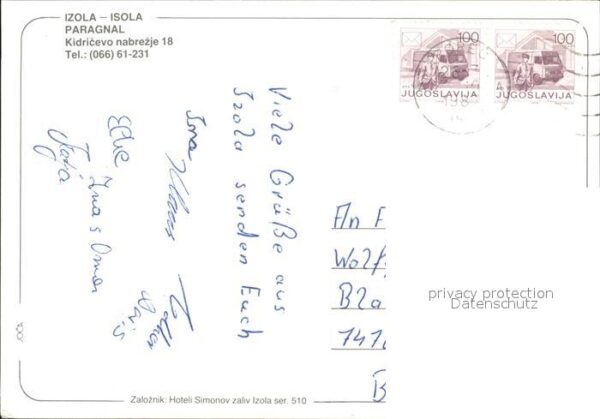 IZOLA – ISOLA
PARAGNAL
Kidričevo nabrežje 18
Tel.: (066) 61-231
100
JUGOSLAVIJA
100
JUGOSLAVIJA
Viele Grüße aus
Izola senden Euch
Klaus
Elke
Ina's Oma
Tanja
An F
Wolf
Bla
747
B
privacy protection
Datenschutz
Založnik: Hoteli Simonov zaliv Izola ser. 510